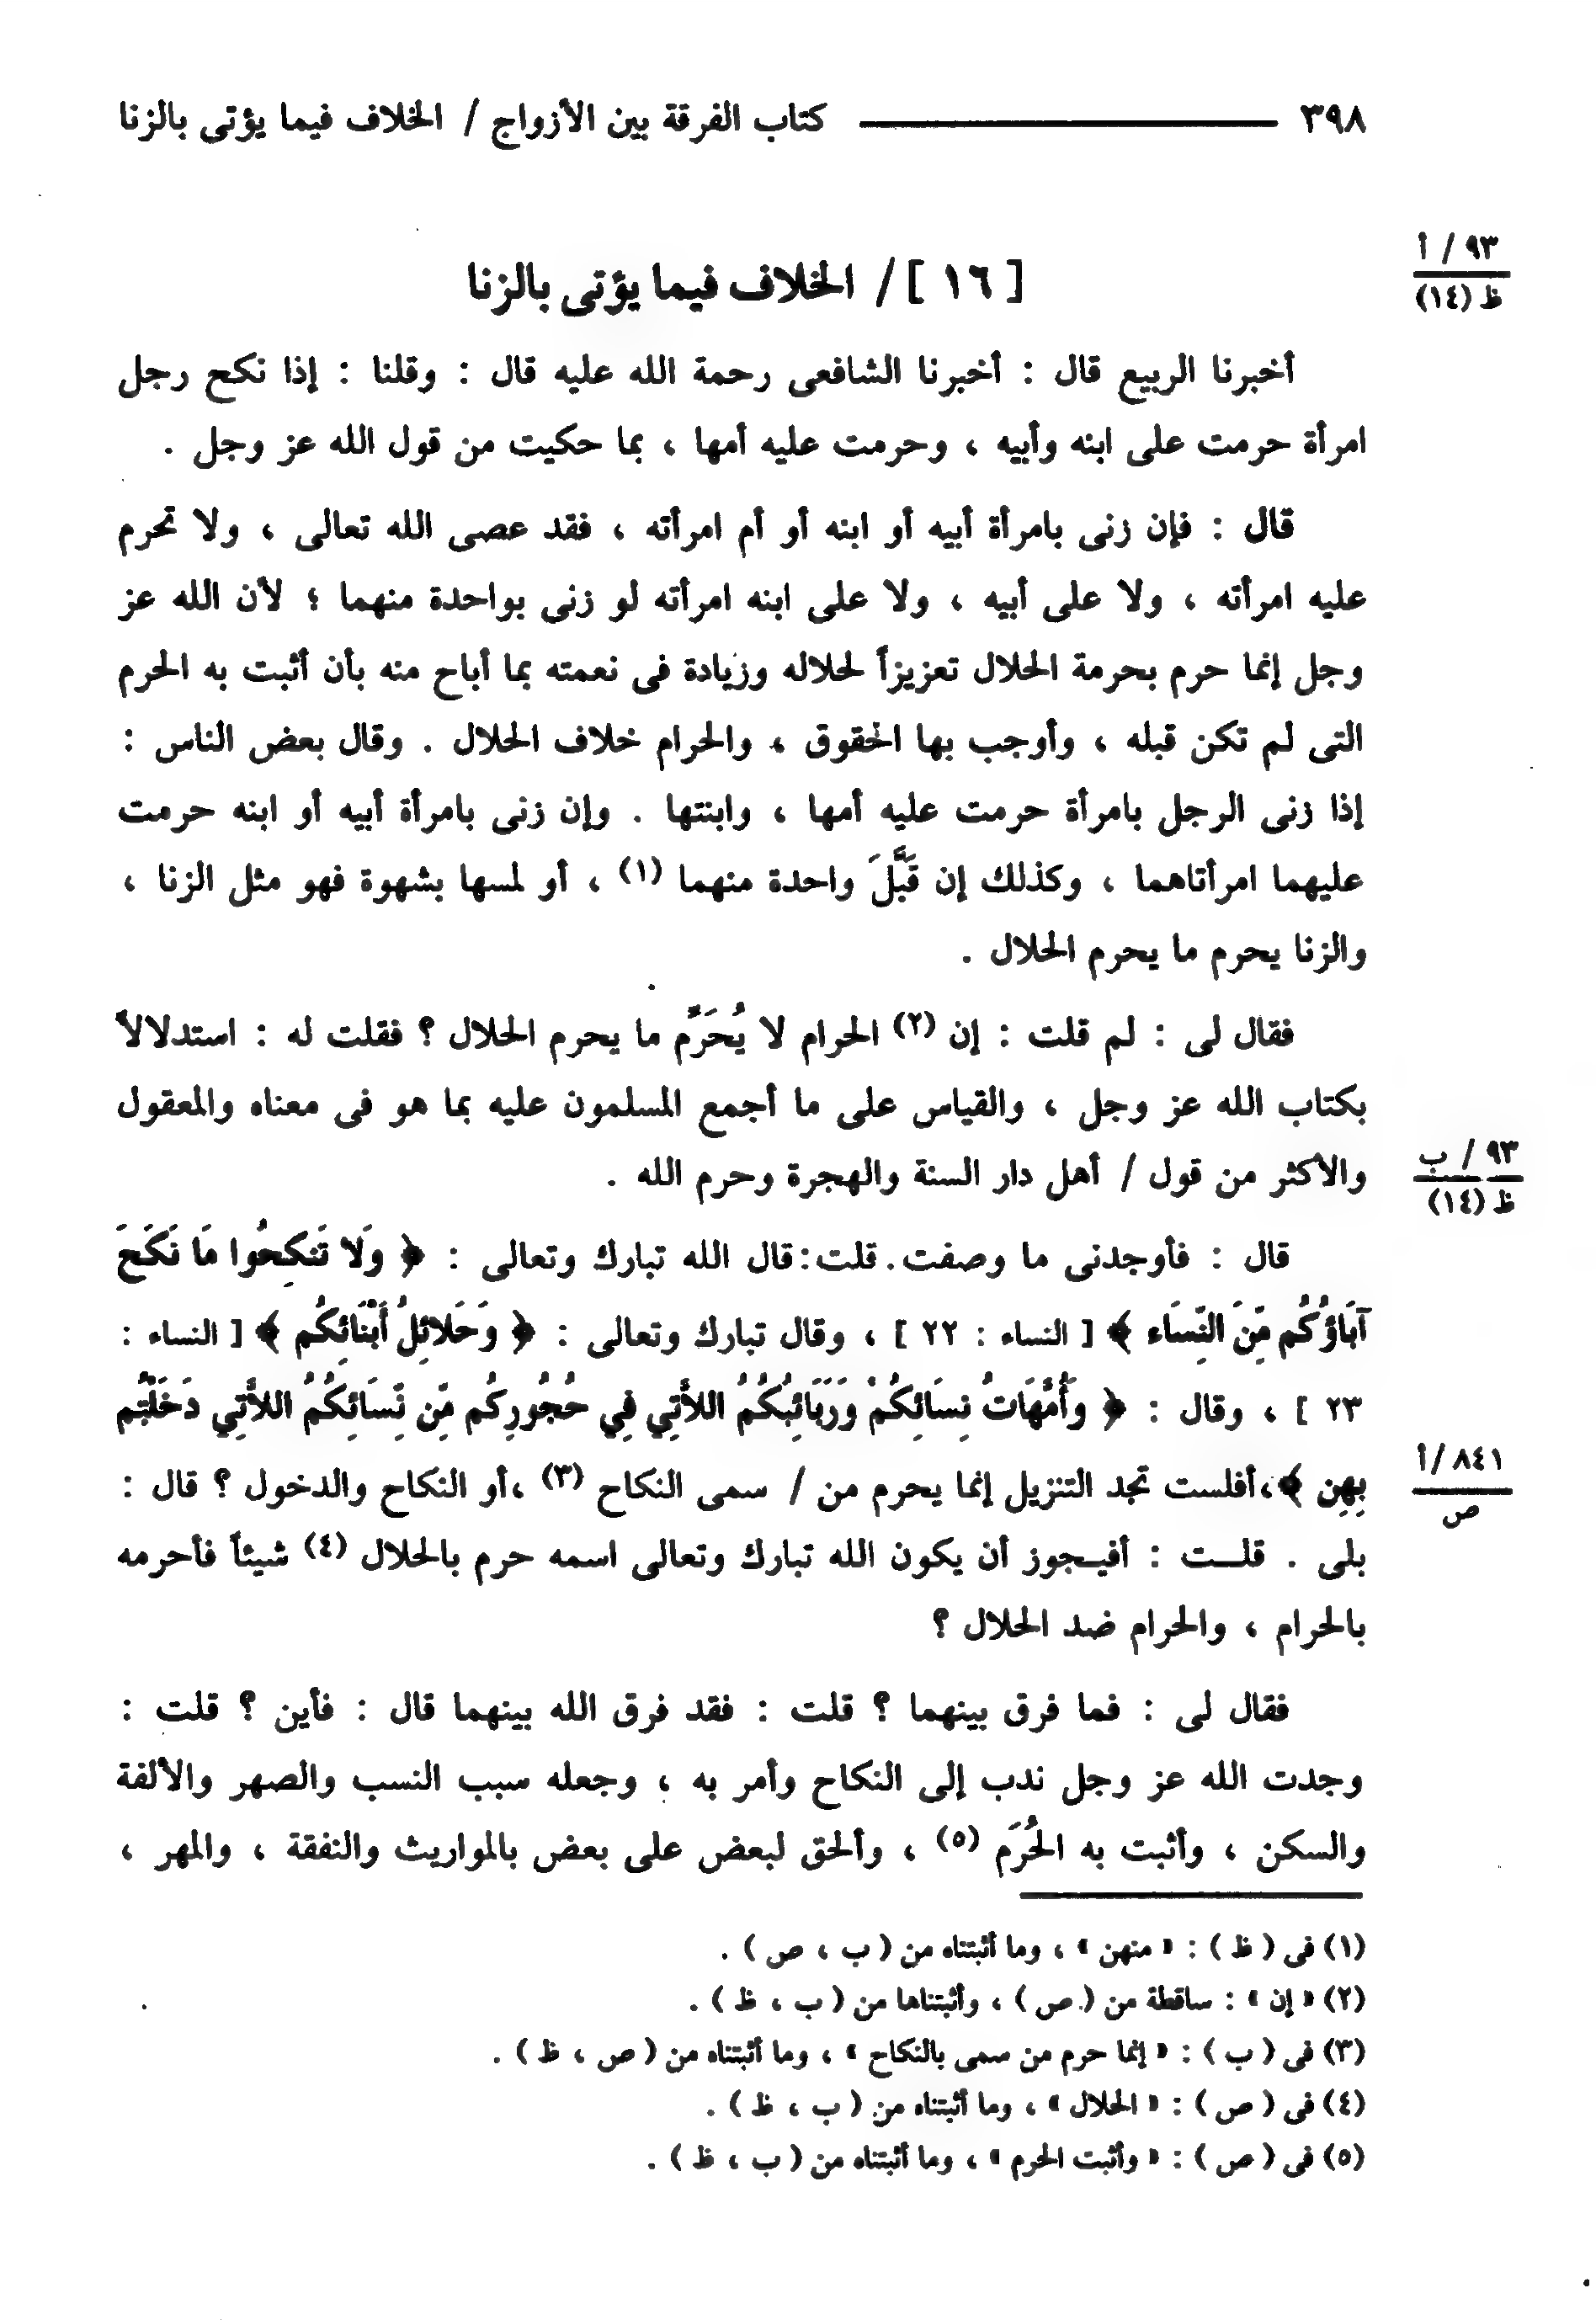 ٣٩٨ ـــــــــــــــــ كتاب الفرقة بين الأزواج / الخلاف فيما يؤتى بالزنا
٩٣ / أ
ظ (١٤)
[ ١٦ ] / الخلاف فيما يؤتى بالزنا
أخبرنا الربيع قال : أخبرنا الشافعى رحمة الله عليه قال : وقلنا : إذا نكح رجل
امرأة حرمت على ابنه وأبيه ، وحرمت عليه أمها ، بما حكيت من قول الله عز وجل .
قال : فإن زنى بامرأة أبيه أو ابنه أو أم امرأته ، فقد عصى الله تعالى ، ولا تحرم
عليه امرأته ، ولا على أبيه ، ولا على ابنه امرأته لو زنى بواحدة منهما ؛ لأن الله عز
وجل إنما حرم بحرمة الحلال تعزيزاً لحلاله وزيادة فى نعمته بما أباح منه بأن أثبت به الحرم
التى لم تكن قبله ، وأوجب بها الحقوق ، والحرام خلاف الحلال . وقال بعض الناس :
إذا زنى الرجل بامرأة حرمت عليه أمها ، وابنتها . وإن زنى بامرأة أبيه أو ابنه حرمت
عليهما امرأتاهما ، وكذلك إن قَبَّلَ واحدة منهما (١) ، أو لمسها بشهوة فهو مثل الزنا ،
والزنا يحرم ما يحرم الحلال .
فقال لى : لم قلت : إن (٢) الحرام لا يُحَرِّم ما يحرم الحلال ؟ فقلت له : استدلالاً
بكتاب الله عز وجل ، والقياس على ما أجمع المسلمون عليه بما هو فى معناه والمعقول
والأكثر من قول / أهل دار السنة والهجرة وحرم الله .
٩٣ / ب
ظ (١٤)
قال : فأوجدنى ما وصفت. قلت:قال الله تبارك وتعالى : ﴿ وَلَا تَنكِحُوا مَا نَكَحَ
آبَاؤُكُم مِّنَ النِّسَاء ﴾ [ النساء : ٢٢ ] ، وقال تبارك وتعالى : ﴿ وَحَلائِلُ أَبْنَائِكُم ﴾ [ النساء :
٢٣ ] ، وقال : ﴿ وَأُمَّهَاتُ نِسَائِكُمْ وَرَبَائِبُكُمُ اللاَّتِي فِي حُجُورِكُم مِّن نِّسَائِكُمُ اللاَّتِي دَخَلْتُم
بِهِن ﴾،أفلست تجد التنزيل إنما يحرم من / سمى النكاح (٣) ،أو النكاح والدخول ؟ قال :
٨٤١ /أ
ص
بلى . قلـت : أفيـجوز أن يكون الله تبارك وتعالى اسمه حرم بالحلال (٤) شيئاً فأحرمه
بالحرام ، والحرام ضد الحلال ؟
فقال لى : فما فرق بينهما ؟ قلت : فقد فرق الله بينهما قال : فأين ؟ قلت :
وجدت الله عز وجل ندب إلى النكاح وأمر به ، وجعله سبب النسب والصهر والألفة
والسكن ، وأثبت به الحُرَم (٥) ، وألحق لبعض على بعض بالمواريث والنفقة ، والمهر ،
(١) فى ( ظ ) : « منهن » ، وما أثبتناه من ( ب ، ص ) .
(٢) « إن » : ساقطة من ( ص ) ، وأثبتناها من ( ب ، ظ ) .
(٣) فى ( ب ) : « إنما حرم من سمى بالنكاح » ، وما أثبتناه من ( ص ، ظ ) .
(٤) فى ( ص ) : « الحلال » ، وما أثبتناه من ( ب ، ظ ) .
(٥) فى ( ص ) : « وأثبت الحرم » ، وما أثبتناه من ( ب ، ظ ) .